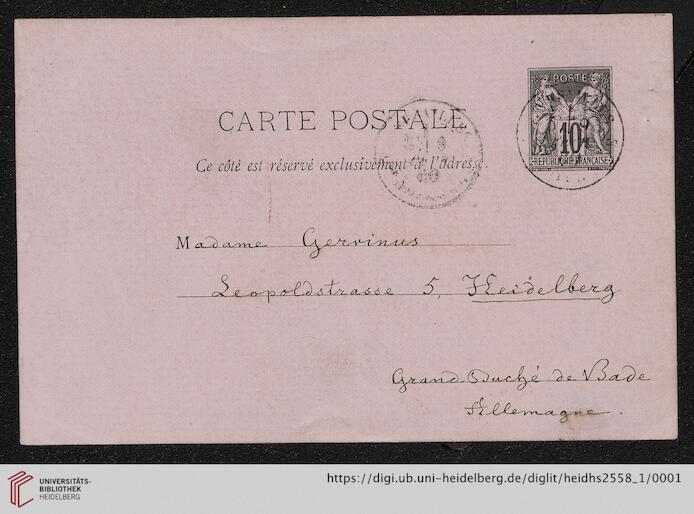 POSTE
10
REPUBLIQUE FRANÇAISE
CARTE POSTALE
Ce côté est réservé exclusivement à l'adresse.
Madame Gervinus
Leopoldstrasse 5, Heidelberg
Grand-Duché de Bade
Allemagne.
UNIVERSITÄTS-
BIBLIOTHEK
HEIDELBERG
https://digi.ub.uni-heidelberg.de/diglit/heidhs2558_1/0001